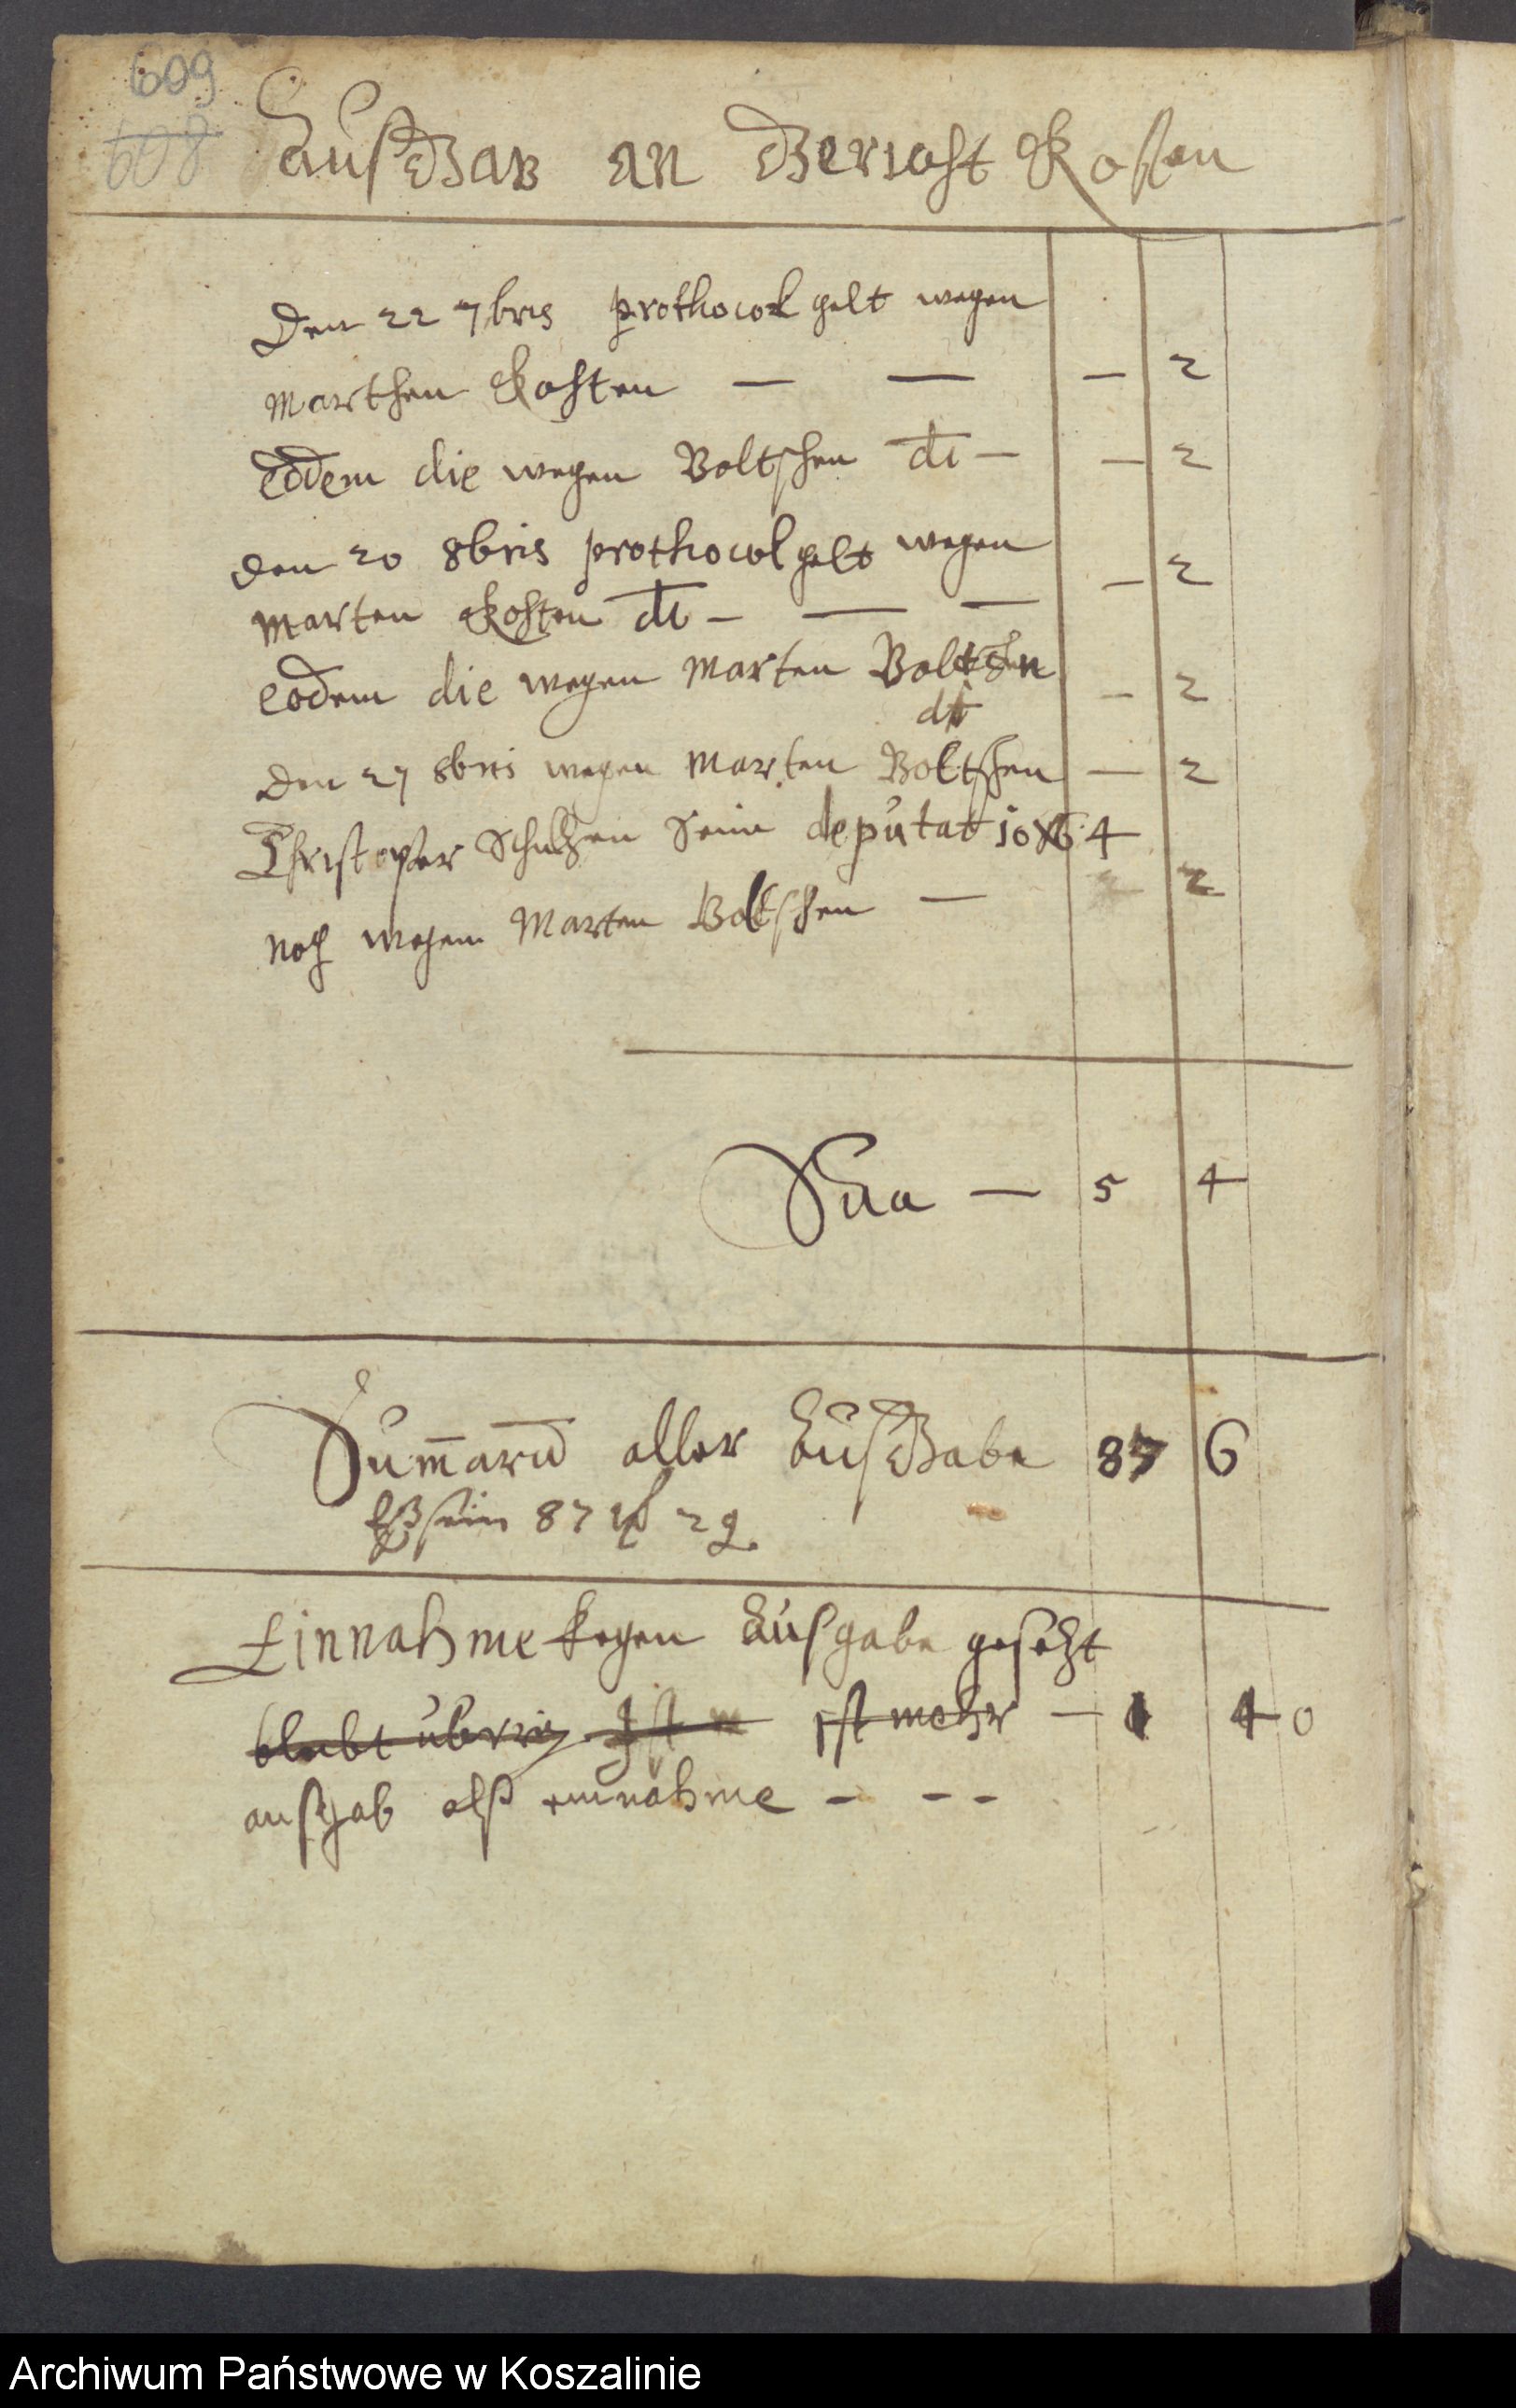 609
608
AusGab an Gericht Kosten
Den 22 7bris prothocol gelt wegen
Marthen Kohsten — — — 2
eodem die wegen Boltschen dt — — 2
den 20 8bris prothocol gelt wegen
Marten Kohsten dt — — — — 2
eodem die wegen Marten Boltschen — 2
dt
den 27 8bris wegen Marten Boltschen — 2
Christoffer Schultzen seine deputat 4
noch wegen Marten Boltschen — 2
Sua — 5 4
Sumarum aller AusGabe 87 6
Eß sein 87 29
Einnahme kegen Ausgabe gesetzt
bleibt übrig Ist m ist mehr — 1 4 0
ausgab alß einnahme — — —
Archiwum Państwowe w Koszalinie